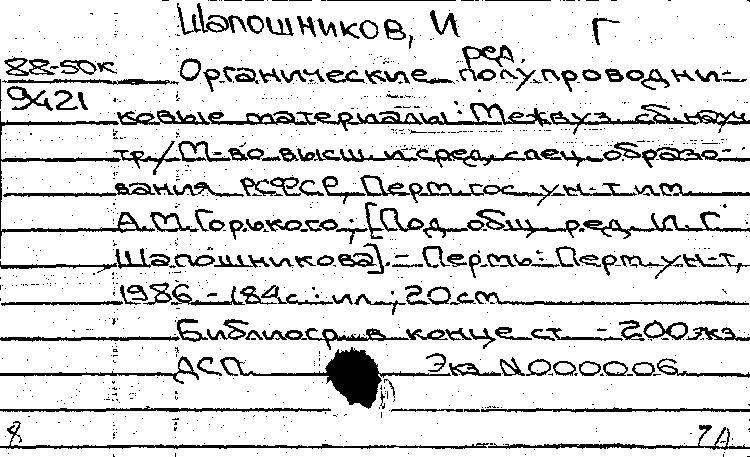 Шапошников, И Г
ред.
88-50к Органические полупроводни-
9421 ковые материалы: Межвуз. сб. науч
тр./М-во высш. и сред. спец. образо-
вания РСФСР, Перм. гос. ун-т им.
А.М. Горького; [Под общ. ред. И. Г.
Шапошникова]. - Пермь: Перм. ун-т,
1986. - 184с.: ил.; 20см
Библиогр. в конце ст. - 200 экз.
ДСП. Экз. N000006
8 7А